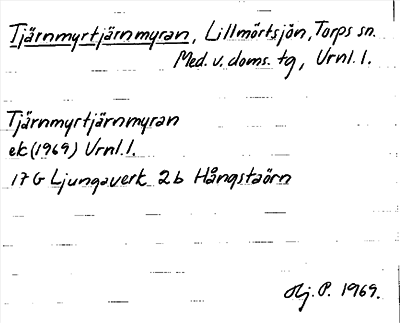 Tjärnmyrtjärnmyran, Lillmörtsjön, Torps sn.
Med. v. doms. tg, Urnl. l.
Tjärnmyrtjärnmyran
ek (1969) Urnl. l.
17 G Ljungaverk 2b Hångstaörn
Obj. P. 1969.